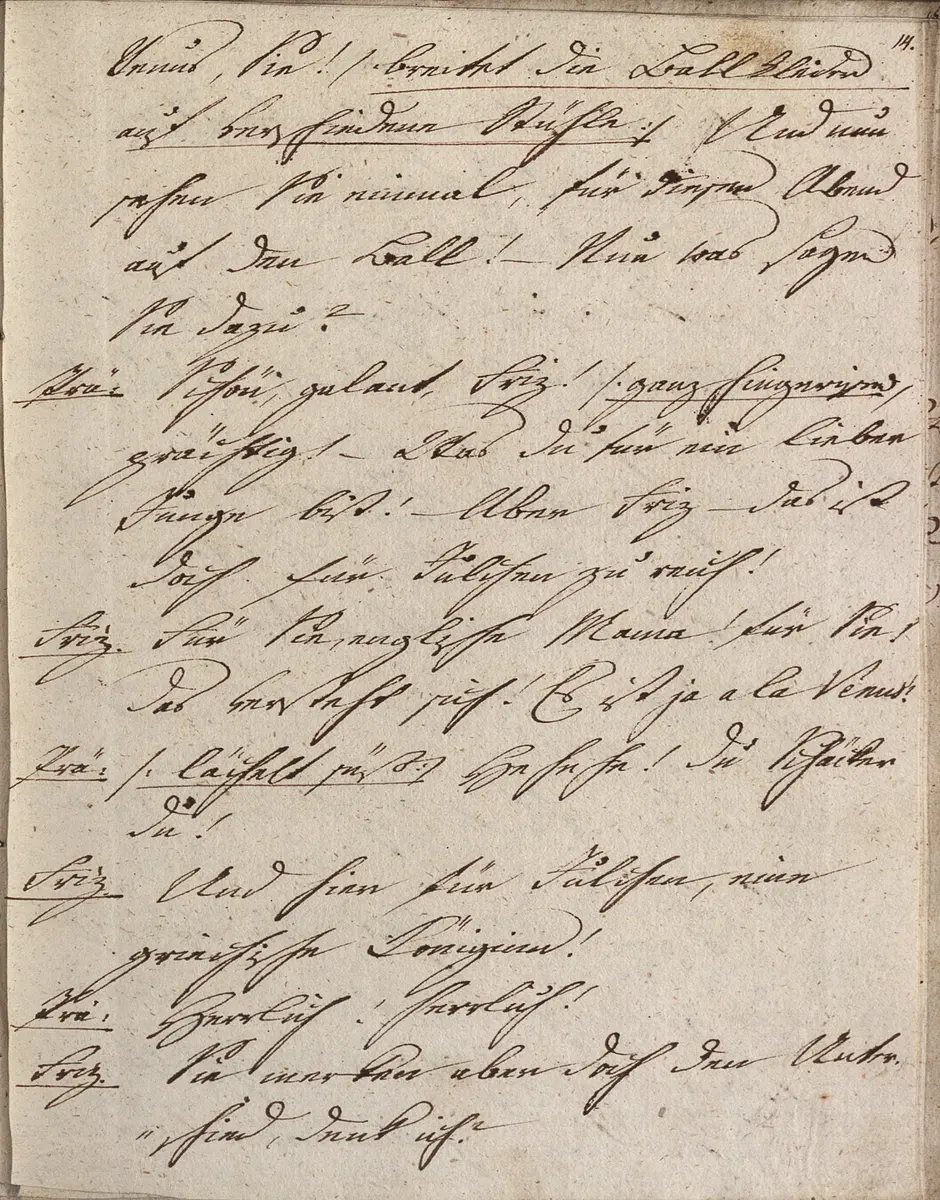 14.
Venus, Sie! /: breitet die Ballkleider
auf verschiedene Stühle :/ Und nun
sehen Sie einmal, für diesen Abend
auf den Ball! – Nun was sagen
Sie dazu?
Prä: Schön, galant, Friz! /: ganz hingerissen,
prächtig! – Was du für ein lieber
Junge bist! – Aber Friz – das ist
doch für Julchen zu reich!
Friz. Für Sie, englische Mama! für Sie!
das versteht sich! Es ist ja a la Venus!
Prä: /: lächelt süß :/ He he he! du Schäcker
du!
Friz. Und hier für Julchen, eine
griechische Königinn!
Prä: Herrlich! herrlich!
Friz. Sie merken aber doch den Unter-
"schied, denk ich?